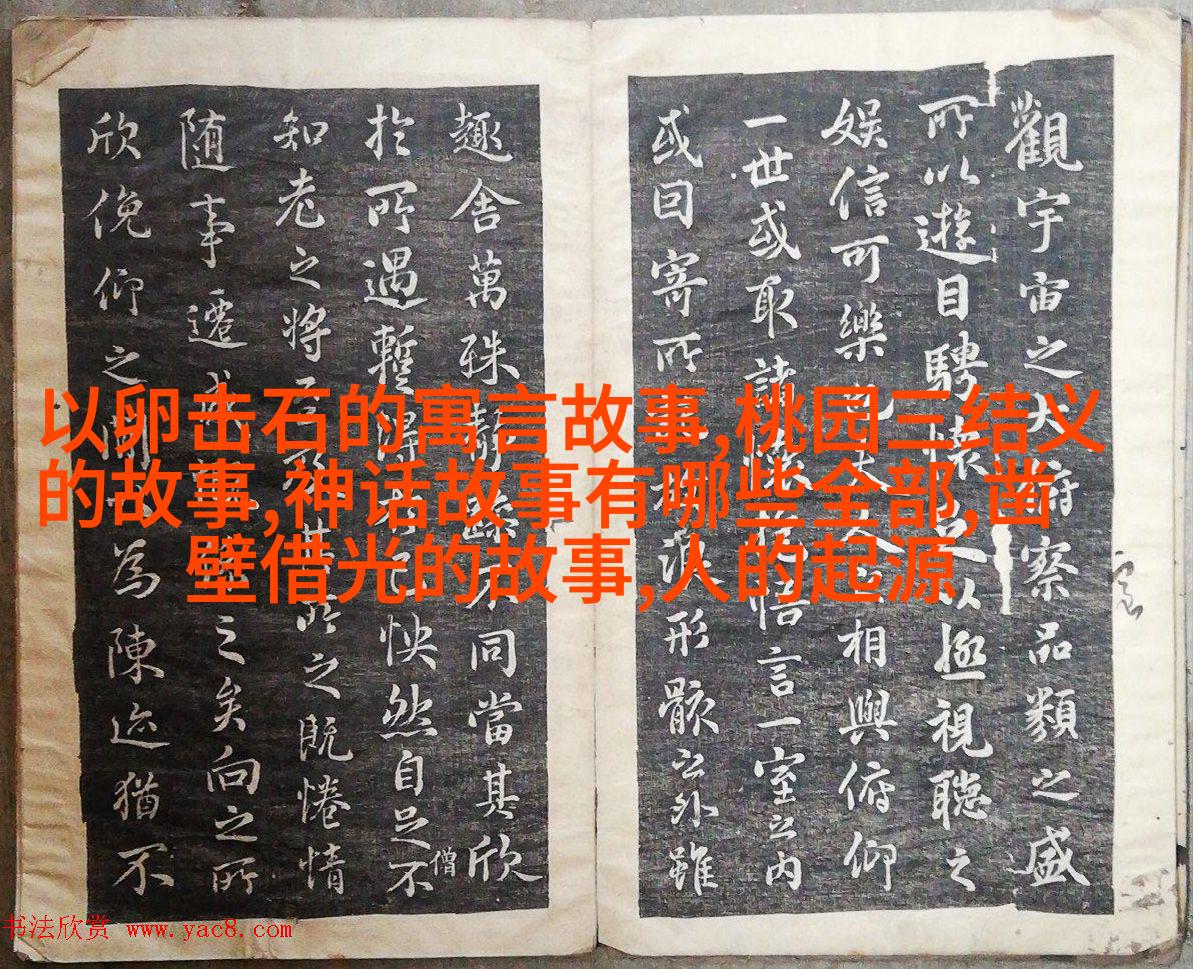 觀宇宙之大俯察品類之盛
所以遊目騁懷足以極視聽之
娛信可樂也夫人之相與俯仰
一世或取諸懷抱悟言一室之内
或因寄所託放浪形骸之外雖
趣舍萬殊靜躁不同當其欣
於所遇暫得於己怏然自足不
僧
知老之將至及其所之既惓情
随事遷感慨係之矣向之所
欣俛仰之閒以為陳迹猶不
以卵击石的寓言故事,桃园三结义
的故事,神话故事有哪些全部,凿
壁借光的故事,人的起源
书法欣赏 www.yac8.com